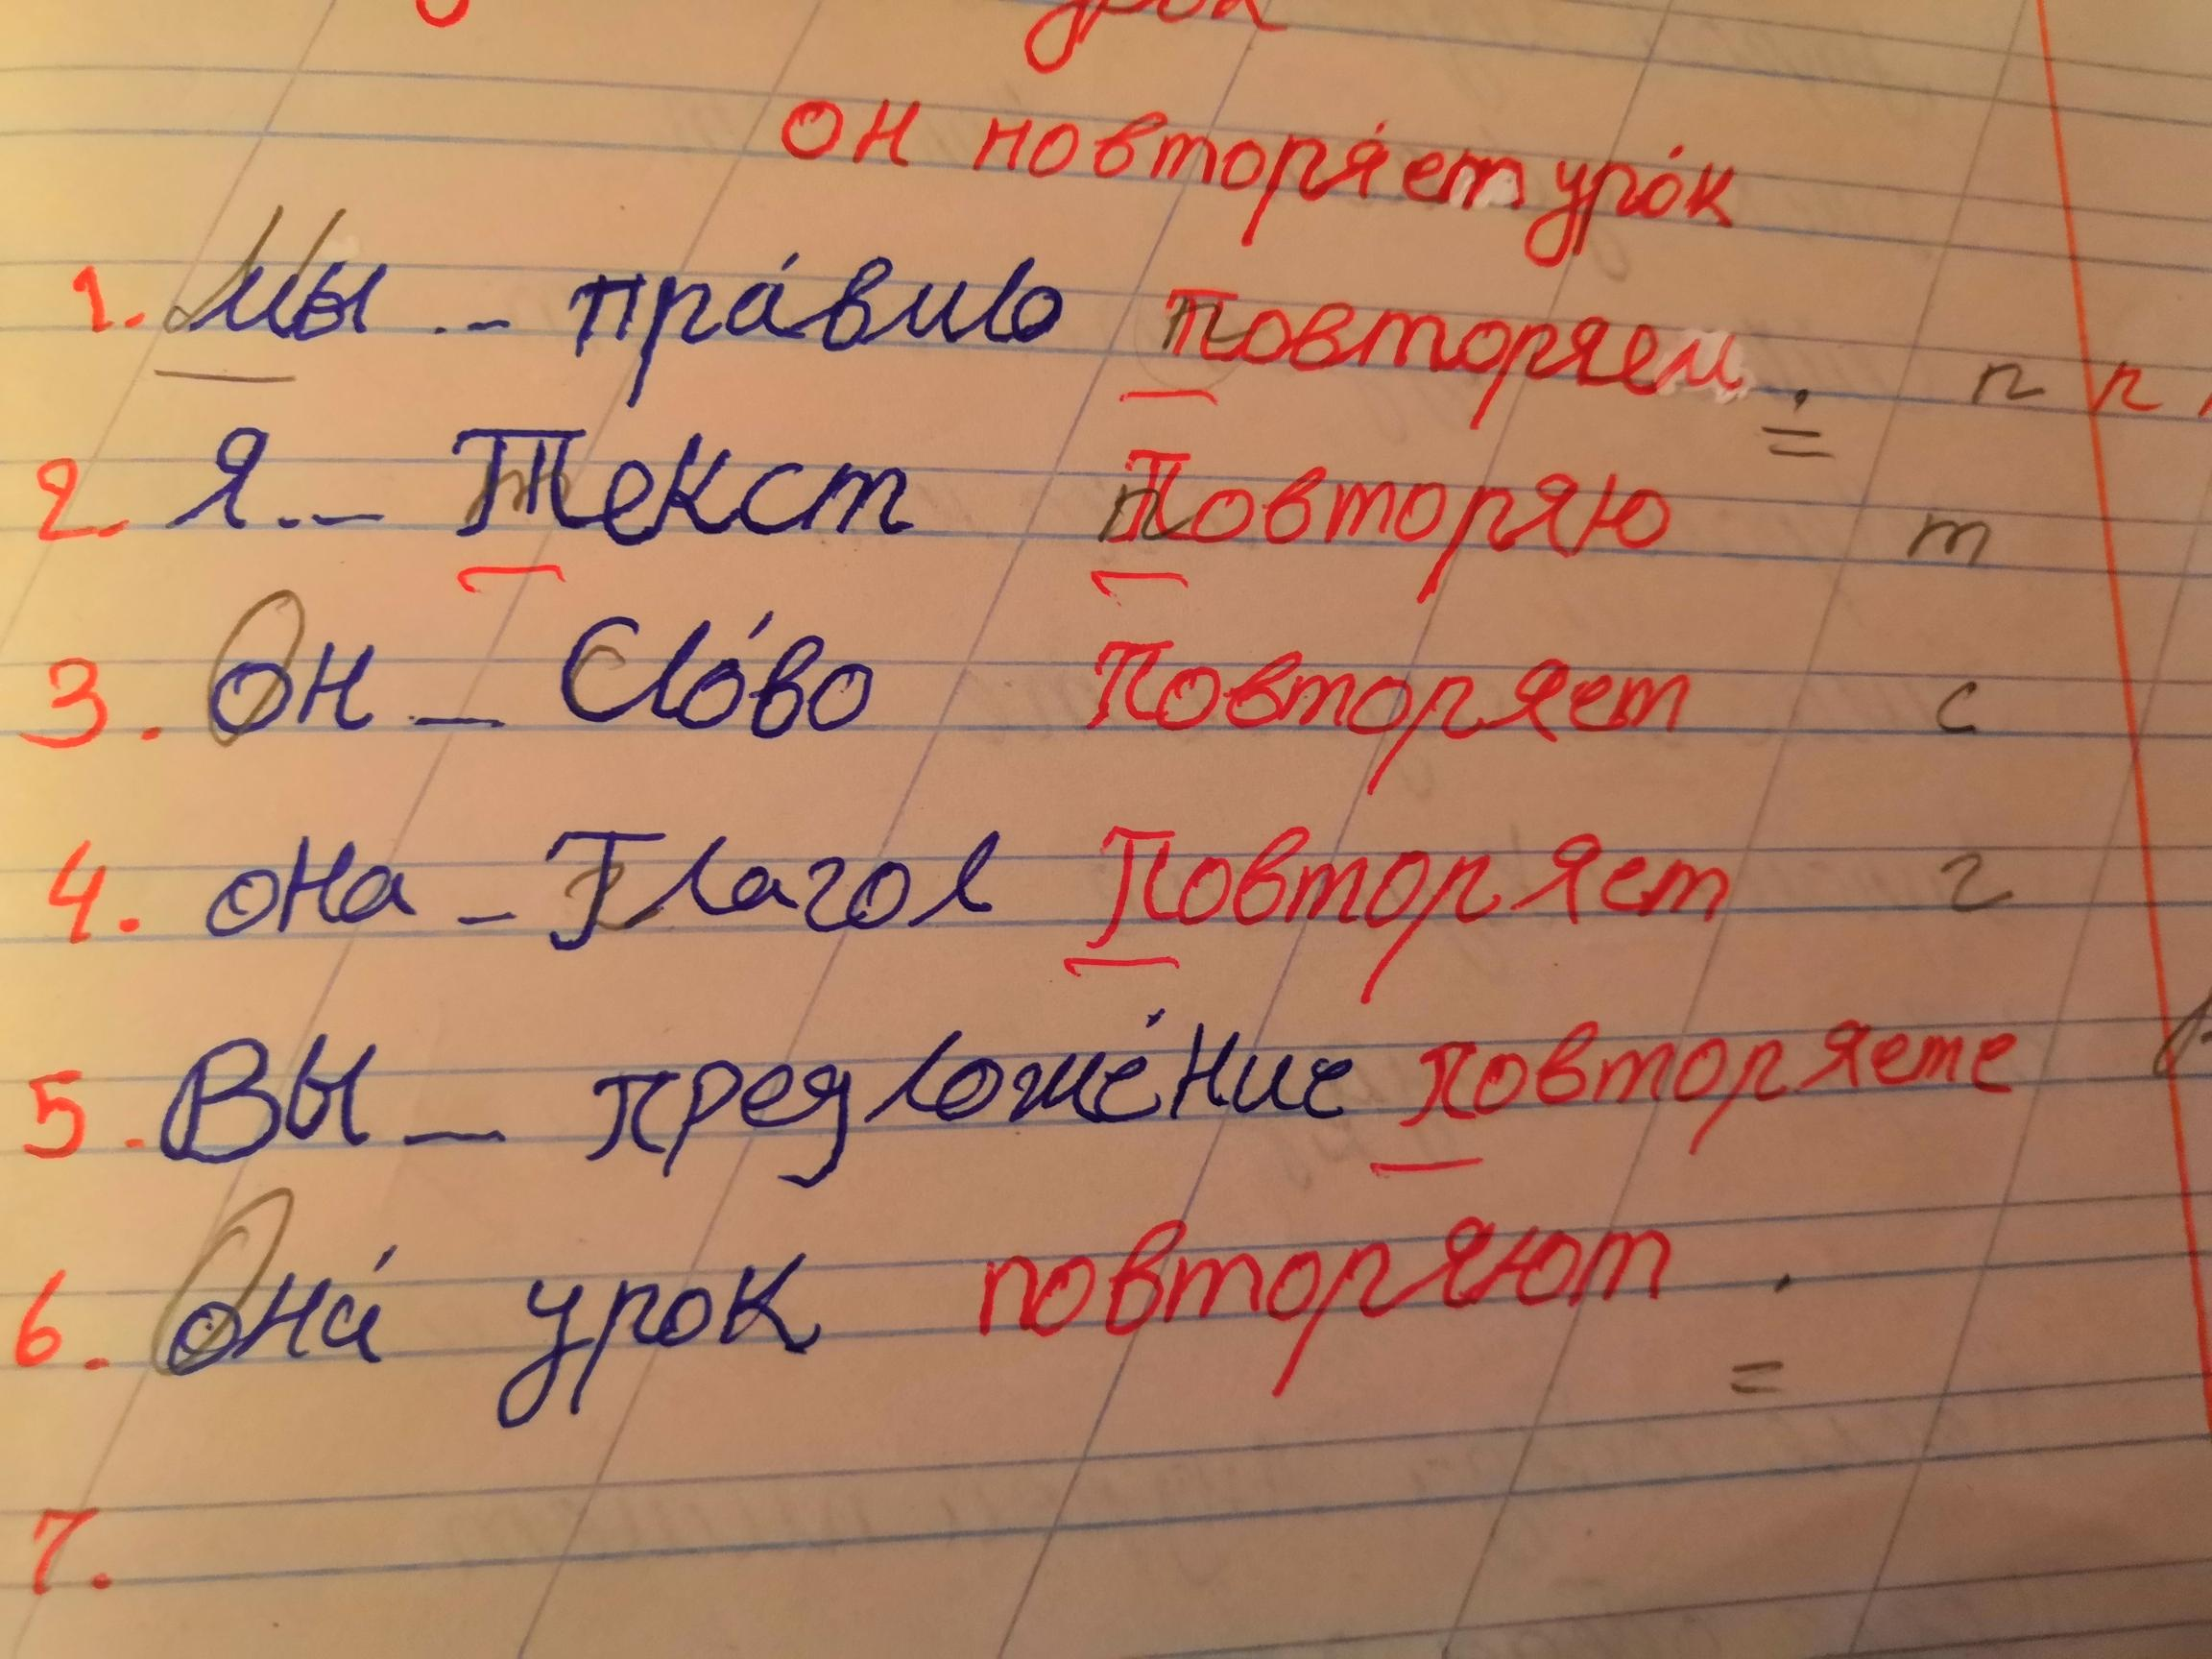 урок
он повторя́ет уро́к
1. Мы .. – пра́вило повторяем. п п
2. Я .. – Текст Повторяю т
3. Он – Сло́во Повторяет с
4. она – Глагол Повторяет г
5. Вы – предложе́ние повторяете
6. Она́ урок повторяют .
7.